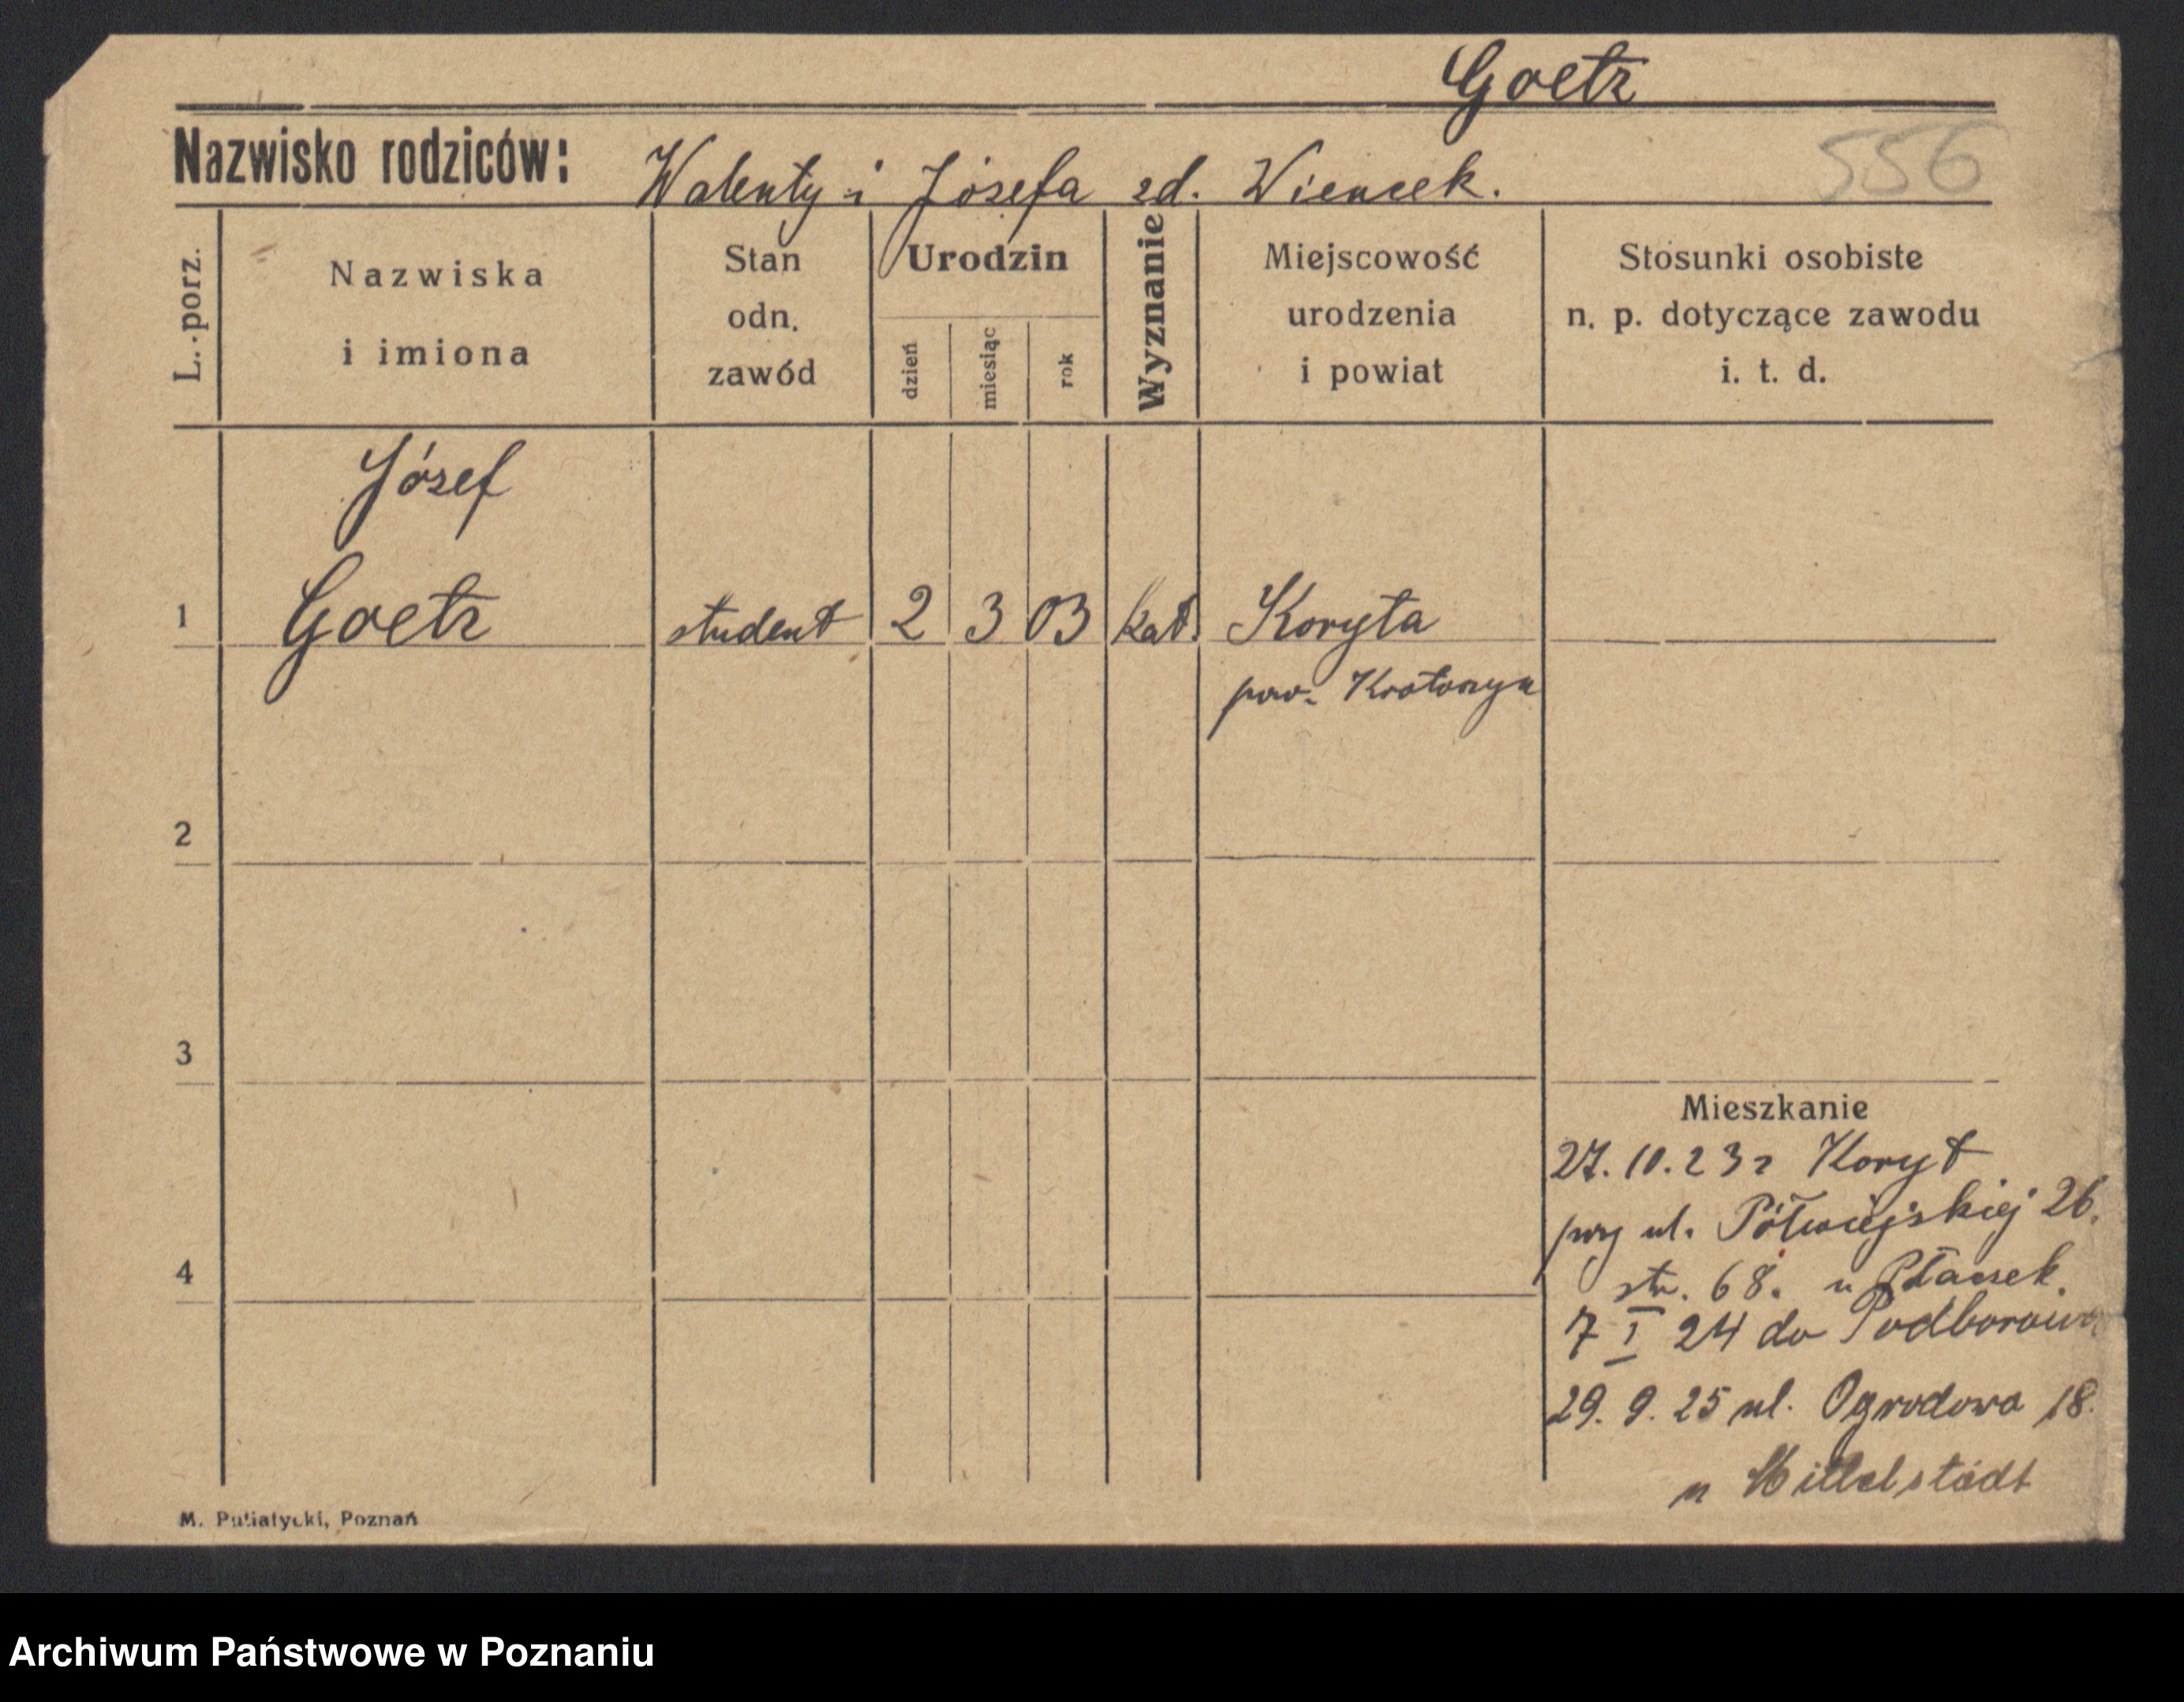 Goetz
Nazwisko rodziców: Walenty i Józefa zd. Wiencek.
556
L. porz.
Nazwiska i imiona
Stan odn. zawód
Urodzin
dzień
miesiąc
rok
Wyznanie
Miejscowość urodzenia i powiat
Stosunki osobiste n. p. dotyczące zawodu i. t. d.
Józef
1 Goetz student 2 3 03 kat. Koryta
pow. Krotoszyn
2
3
Mieszkanie
27.10.23 z Koryt
przy ul. Półwiejskiej 26.
4
str. 68. u
7 I 24 do Podborowa
29. 9. 25 ul. Ogrodowa 18.
u Mittelstädt
M. Putiatycki, Poznań
Archiwum Państwowe w Poznaniu